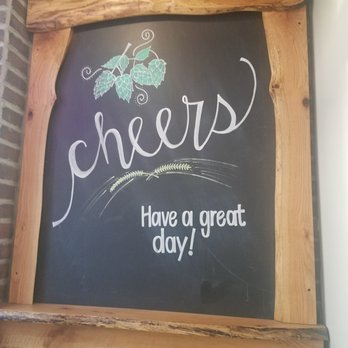 cheers
Have a great
day!